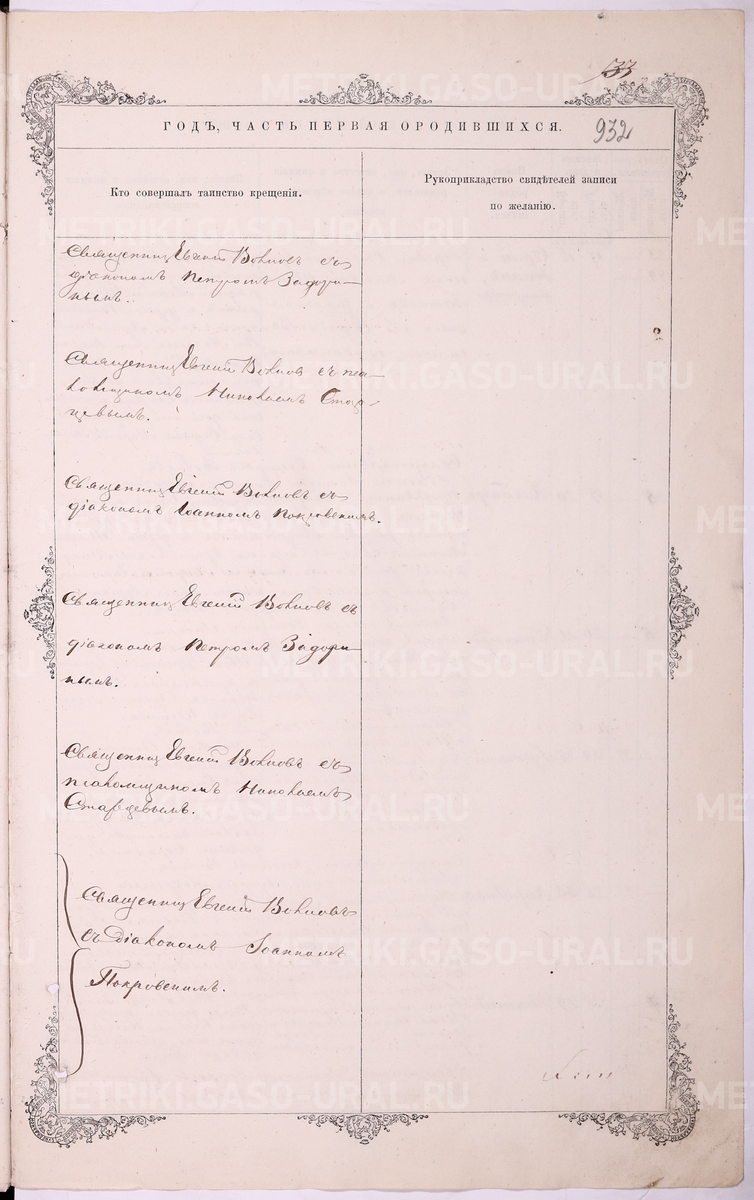 33
ГОДЪ, ЧАСТЬ ПЕРВАЯ ОРОДИВШИХСЯ.
932
Кто совершалъ таинство крещенія.
Рукоприкладство свидѣтелей записи
по желанію.
Священникъ Евгеній съ
діакономъ Петромъ Задори-
нымъ.
Священникъ Евгеній съ пса-
ломщикомъ Николаемъ Стар-
цевымъ.
Священникъ Евгеній съ
діакономъ Іоанномъ Покровскимъ.
Священникъ Евгеній съ
діакономъ Петромъ Задори-
нымъ.
Священникъ Евгеній съ
псаломщикомъ Николаемъ
Старцевымъ.
Священникъ Евгеній
съ Діакономъ Іоанномъ
Покровскимъ.
METRIKI.GASO-URAL.RU